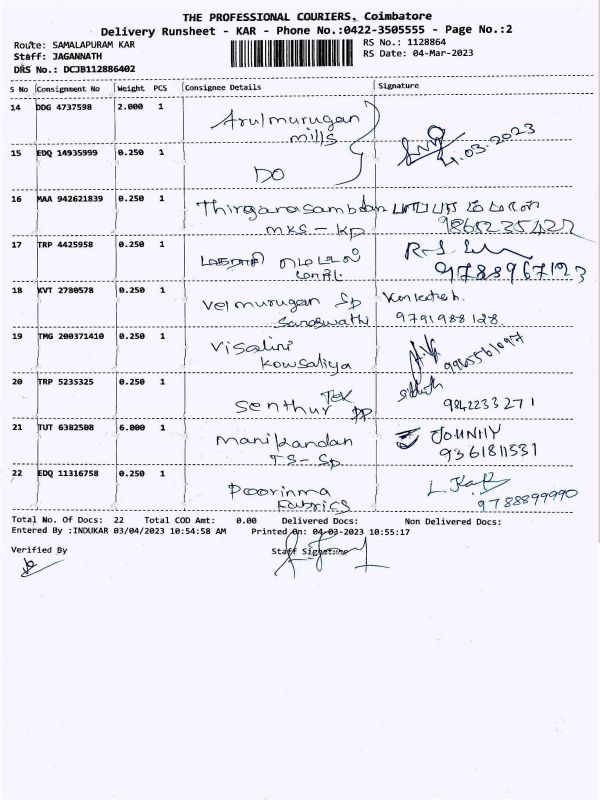 THE PROFESSIONAL COURIERS, Coimbatore
Delivery Runsheet - KAR - Phone No.:0422-3505555 - Page No.:2
Route: SAMALAPURAM KAR
RS No.: 1128864
Staff: JAGANNATH
RS Date: 04-Mar-2023
DRS No.: DCJB112886402
S No Consignment No Weight PCS Consignee Details Signature
14 DDG 4737598 2.000 1 Arulmurugan
mills
4.03.2023
15 EDQ 14935999 0.250 1
DO
16 MAA 942621839 0.250 1 Thirganasambdan
MKS - KP
17 TRP 4425958 0.250 1
9788967123
18 KVT 2780578 0.250 1 Velmurugan Sp Venkatesh.
Saraswathi 9791988128
19 TMG 200371410 0.250 1 Visalini
Kowsaliya 9965561097
20 TRP 5235325 0.250 1 Tex
Senthur PP 9842233271
21 TUT 6382508 6.000 1 Manikandan JOHNNY
TS - Sp 9361811531
22 EDQ 11316758 0.250 1 Poorinma
Fabrics 9788899990
Total No. Of Docs: 22 Total COD Amt: 0.00 Delivered Docs: Non Delivered Docs:
Entered By :INDUKAR 03/04/2023 10:54:58 AM Printed On: 04-03-2023 10:55:17
Verified By Staff Signature